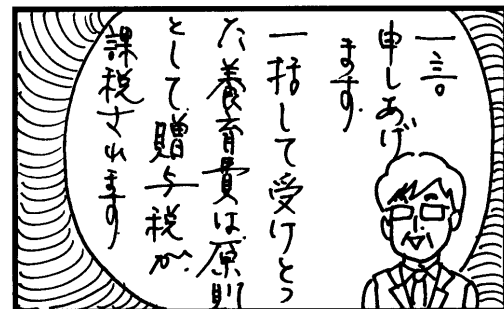 一言。
申しあげ
ます。
一括して受けとっ
た養育費は原則
として贈与税が
課税されます